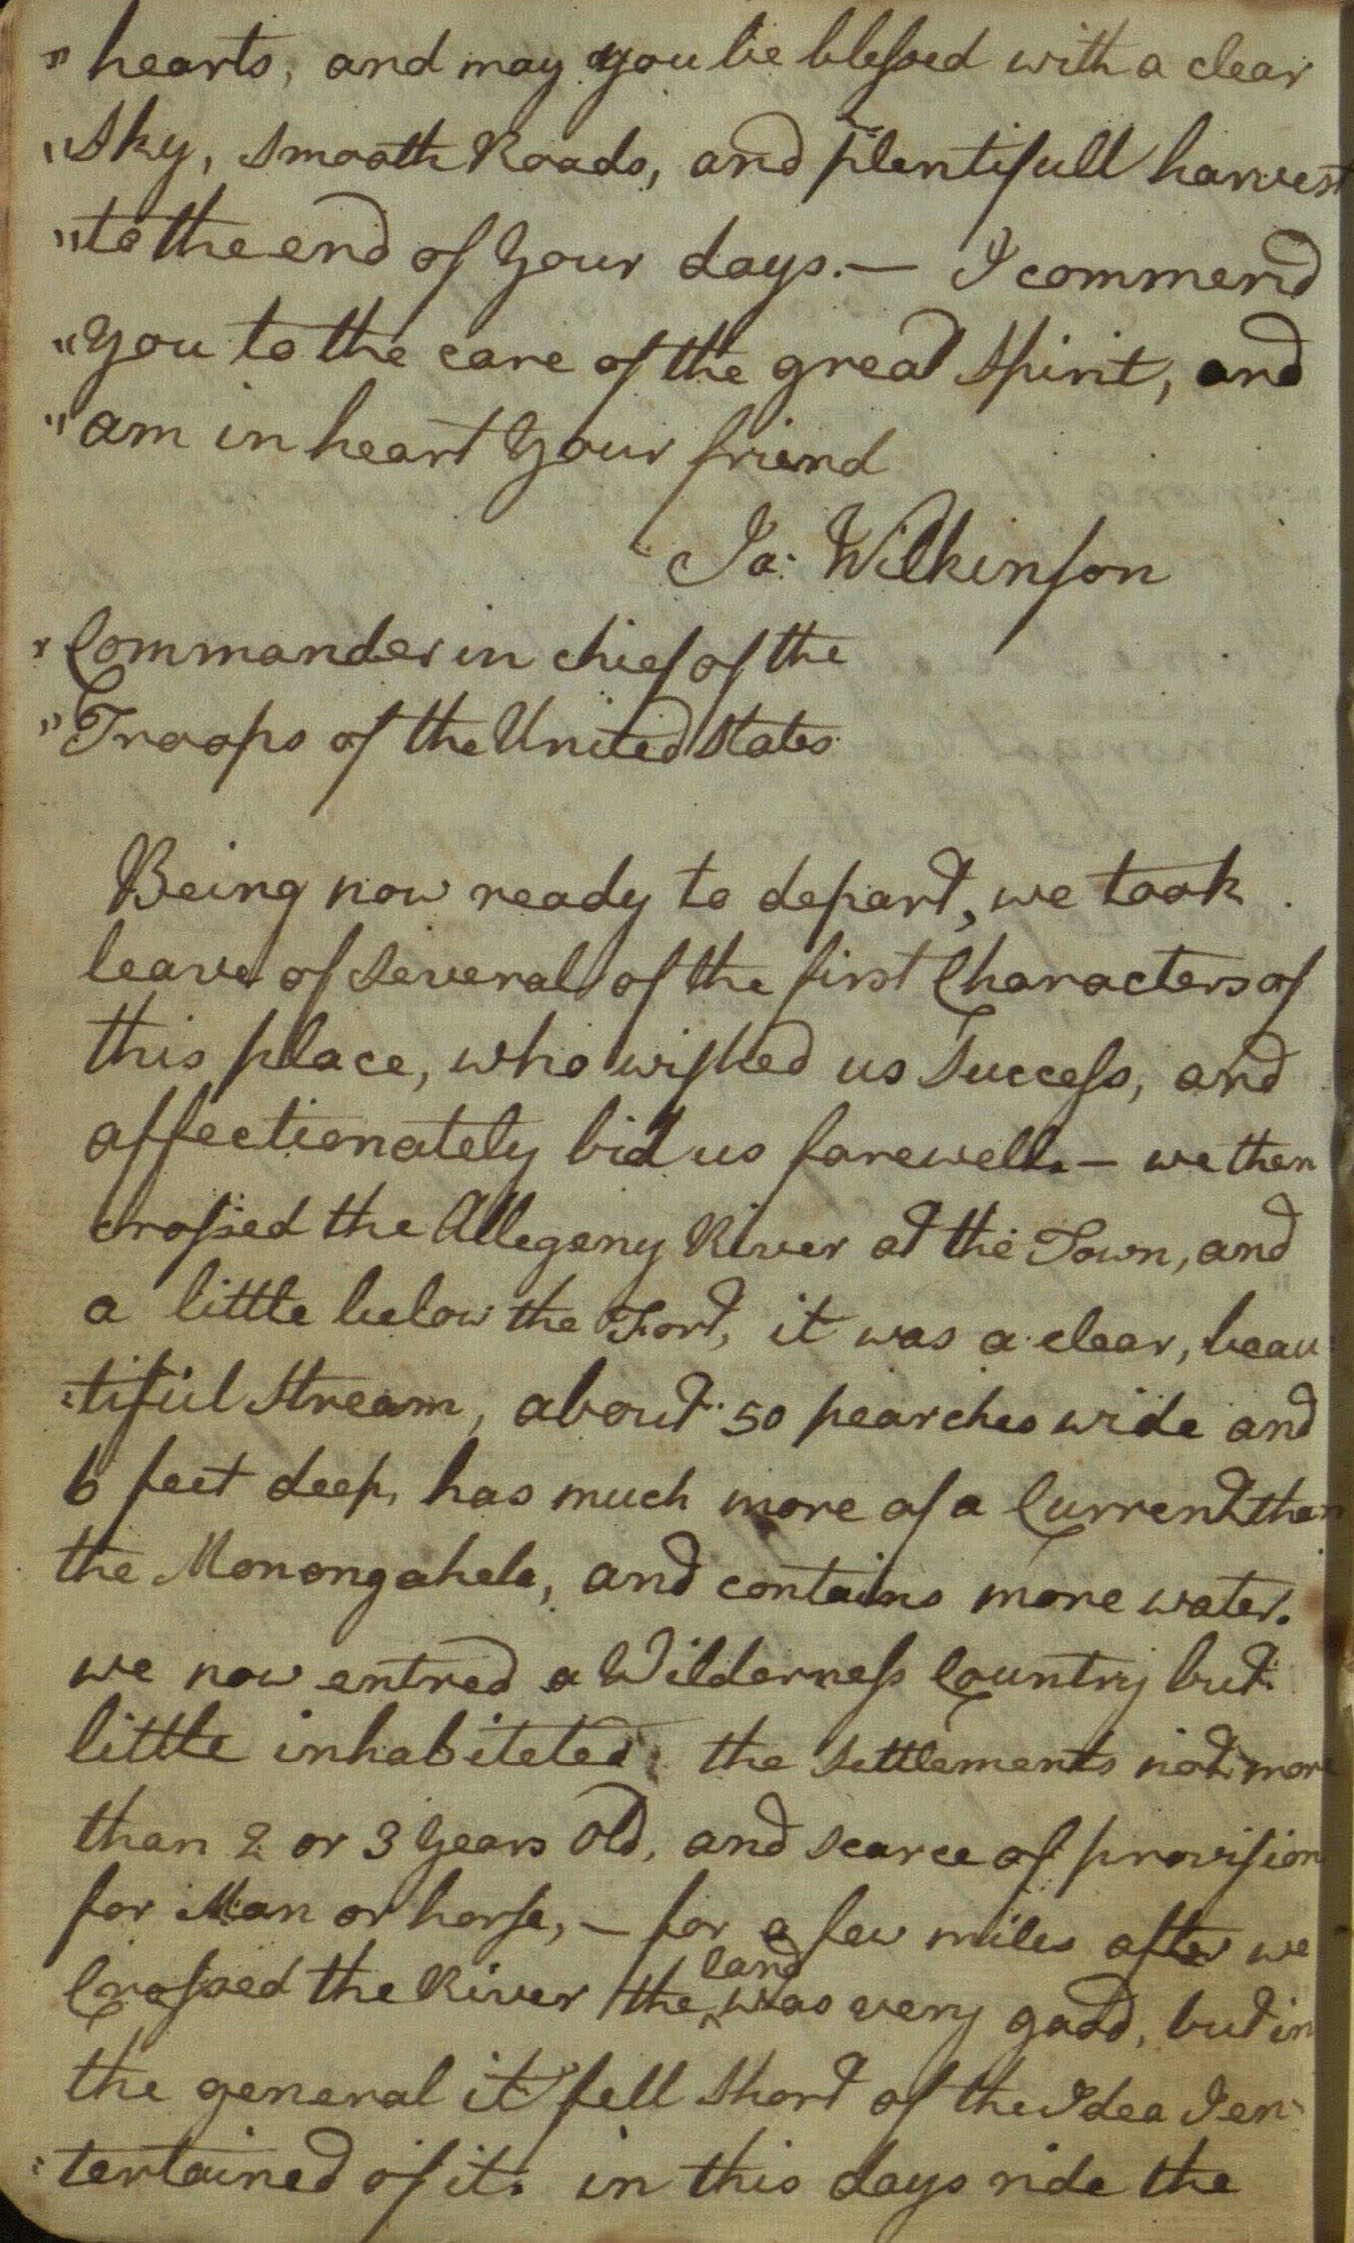 " hearts, and may you be blessed with a clear
" Sky, smooth Roads, and plentifull harvest
" to the end of your days. — I commend
" you to the care of the great Spirit, and
" am in heart your friend
Ja: Wilkinson
" Commander in chief of the
" Troops of the United States
Being now ready to depart, we took
leave of several of the first Characters of
this place, who wished us Success, and
affectionately bid us farewell. — we then
crossed the Allegany River at the Town, and
a little below the Fort, it was a clear, beau
:tiful Stream, about 50 pearches wide and
6 feet deep, has much more of a Current than
the Monongahela, and contains more water.
we now entred a Wilderness Country but
little inhabiteted the settlements not more
than 2 or 3 years old, and scarce of provision
for Man or horse, — for a few miles after we
Crossed the River the land was very good, but in
the general it fell short of the Idea I en-
:tertained of it. in this days ride the